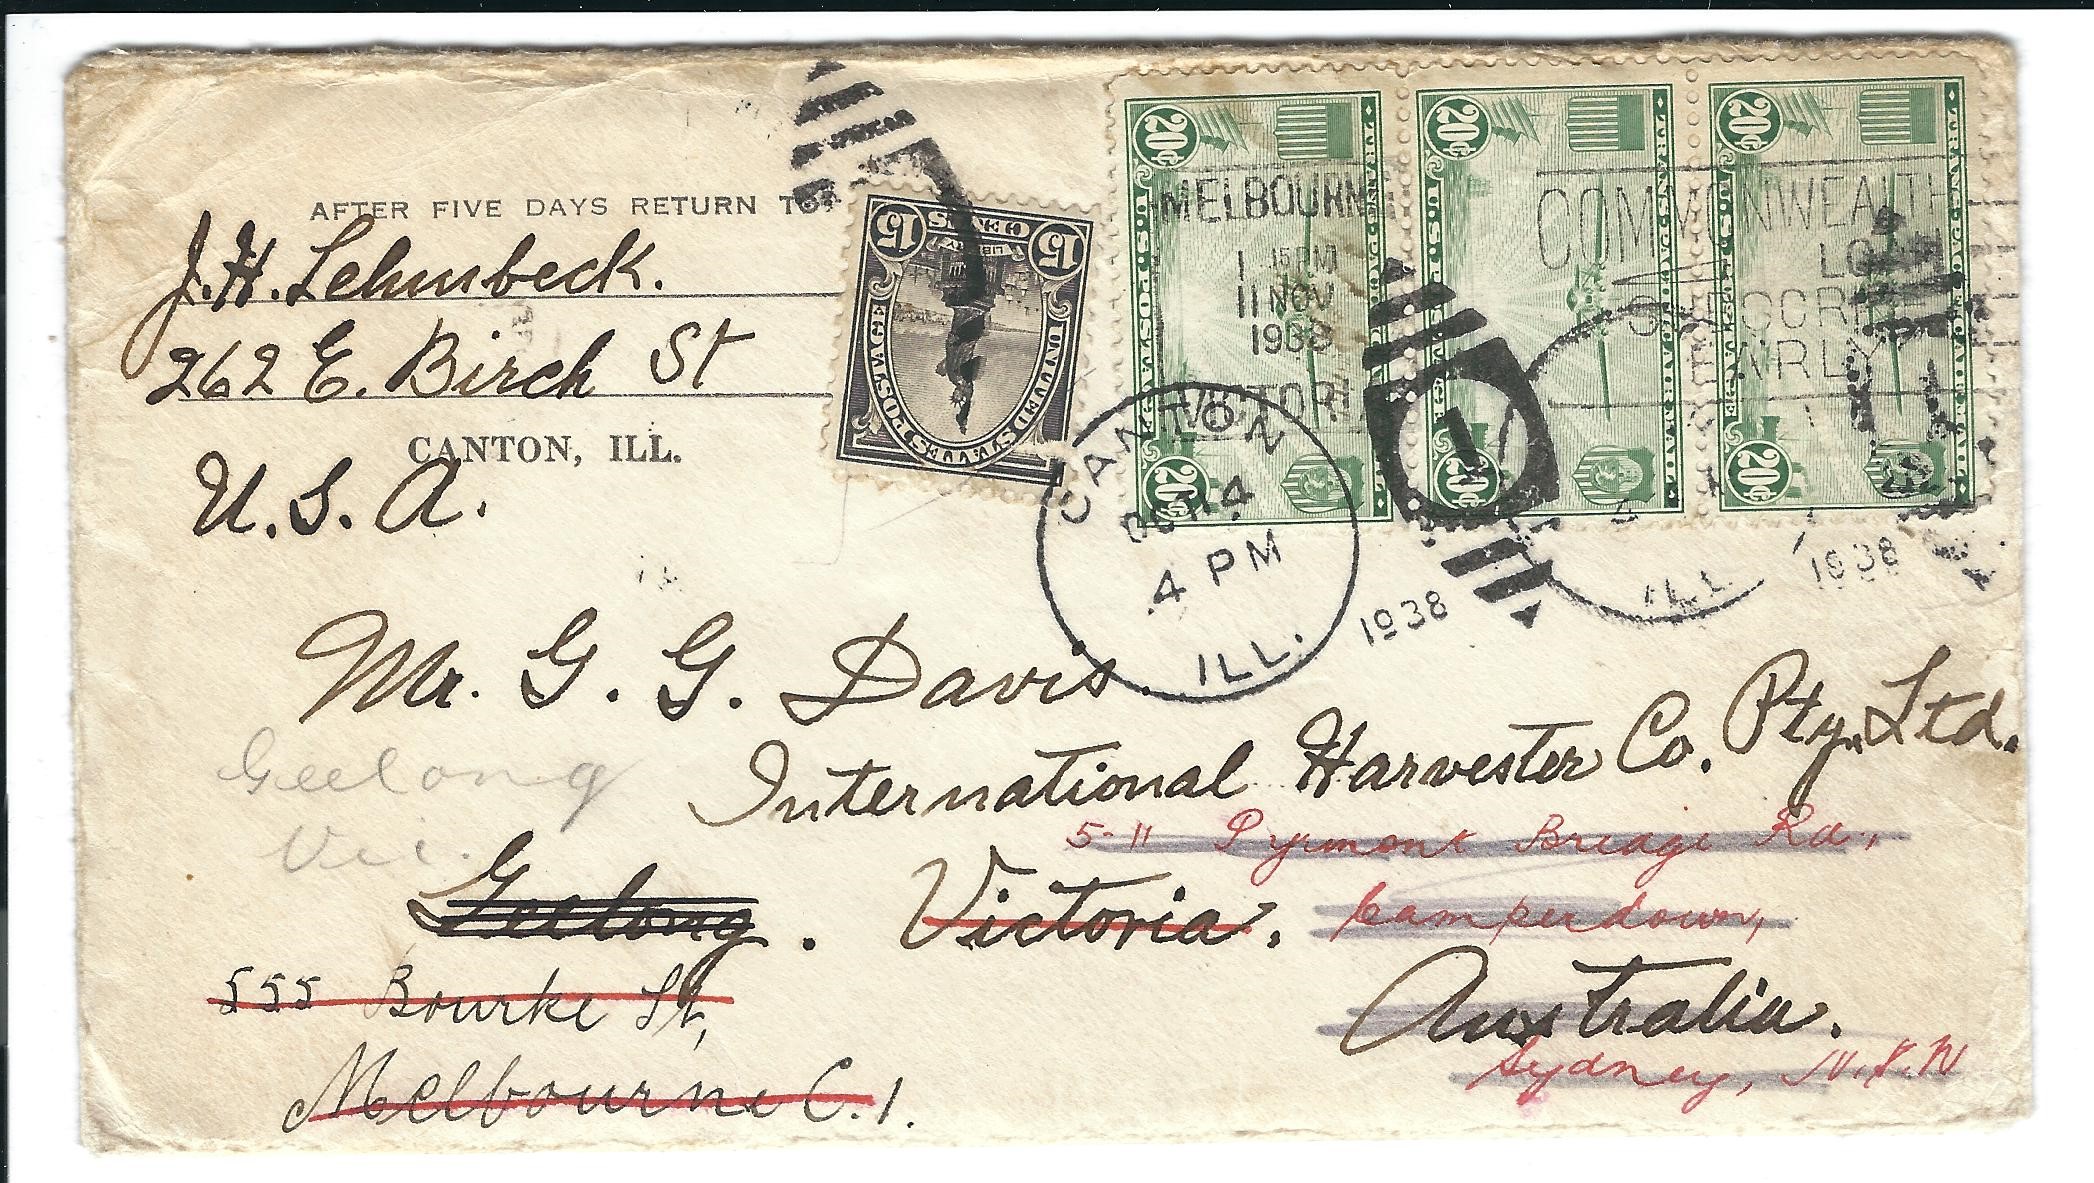 AFTER FIVE DAYS RETURN TO
J. H. Lehmbeck.
262 E. Birch St
CANTON, ILL.
U. S. A.
15 CENTS 15
LIBERTY
UNITED STATES POSTAGE
20¢
20¢
20¢
U.S. POSTAGE
TRANS-PACIFIC AIR MAIL
20¢
20¢
20¢
MELBOURNE
1 15PM
11 NOV
1938
VICTORIA
COMMONWEALTH
LOAN
EARLY
CANTON
4 PM
ILL.
1938
1
ILL
1938
Mr. G. G. Davis.
International Harvester Co. Pty. Ltd.
Geelong
Vic.
5-11 Pyrmont Bridge Rd.,
Geelong. Victoria. Camperdown,
555 Bourke St, Australia.
Melbourne C.1. Sydney, N.S.W